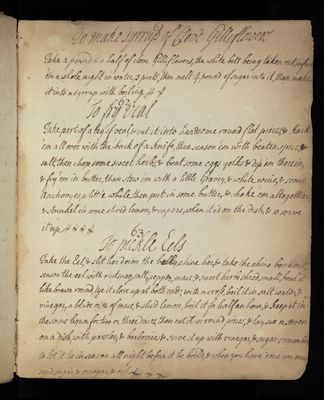 To make syrrup of Clove Gilliflowers
Take a pound & a half of clove Gilliflowers, the white bolt being taken
on a whole night in water, 3 pints, then melt 4 pound of sugar into it, then make
it into a syrrup with boiling
62
To fry Veal
Take part of a leg of veal & cut it into handsome round flat pieces, & hack
em all over with the back of a knife then season em with beaten spice, &
salt, then chop some sweet herbs, & beat some eggs yolks & dip em therein,
& fry em in butter, then stew em with a little Gravey, & white wine, & some
Anchoveys a little while, then put in some butter, & shake em alltogether
& some shred lemon, & capers, when it is on the dish, & so serve
it up
63
To pickle Eels
Take the Eel, & slit her down the belly, shine her, & take the chine bone out,
season the eel with nutmeg, salt, pepper, mace, & sweet herbs shred, small, bind it
like brawn round, tye it close up at both ends, with a cloth, boil it in salt, water, &
vinegar, a blade or 2 of mace, & slic'd lemon, boil it for half an hour, & keep it in
the same liquor, for two or three daies, then cut it in round pieces, & lay six or seven
on a dish, with parsley, & barberries, & serve it up with vinegar, & sugar, remember
to let it lie in season all night before it be boild, & when you have done you must